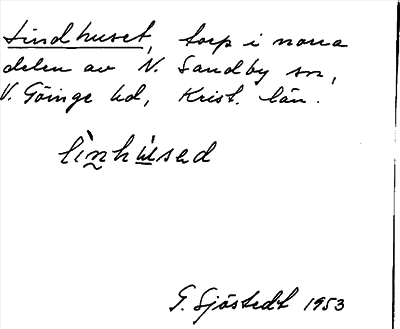 Lindhuset, torp i norra
delen av N. Sandby sn,
V. Göinge hd, Krist. län.
lìnhúsəd
G. Sjöstedt 1953